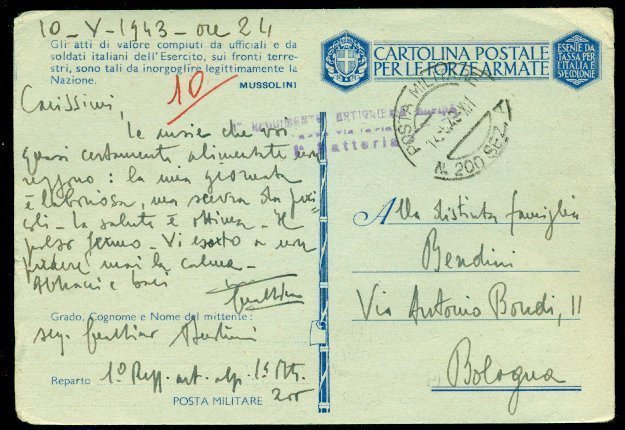 10-V-1943 - ore 24
Gli atti di valore compiuti da ufficiali e da
soldati italiani dell'Esercito, sui fronti terre-
stri, sono tali da inorgoglire legittimamente la
Nazione.
MUSSOLINI
10
Carissimi,
le ansie che voi
quasi certamente alimentate non
reggono: la mia giornata
è laboriosa, ma scevra da peri-
coli - La salute è ottima - Il
polso fermo - Vi esorto a non
perdere mai la calma -
Abbracci e baci
Grado, Cognome e Nome del mittente:
Reparto 1° Regg. art. alp. 1ª Btr.
POSTA MILITARE 200
CARTOLINA POSTALE
PER LE FORZE ARMATE
ESENTE DA
TASSA PER
L'ITALIA E
SVE COLONIE
REGGIMENTO ARTIGLIERIA
Batteria
POSTA MILITARE
N. 200 SEZ. A
Alla distinta famiglia
Bendini
Via Antonio Bondi, 11
Bologna